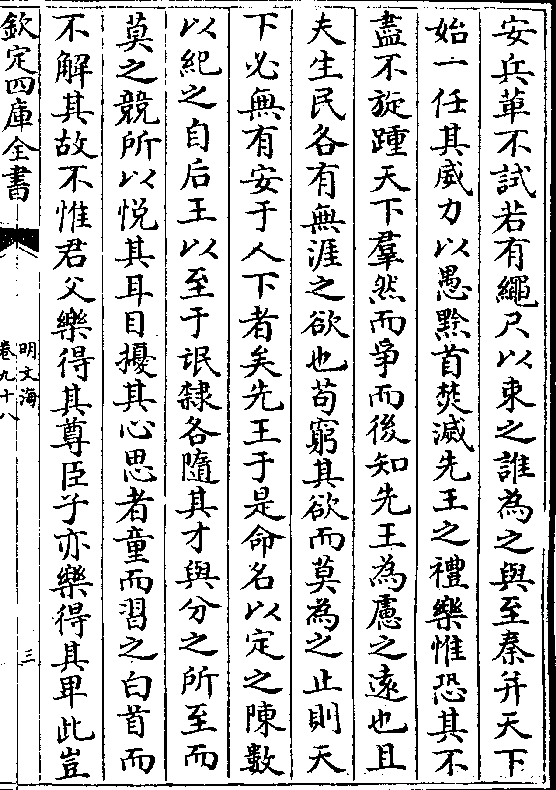 安兵革不試若有繩尺以束之誰為之與至秦并天下
始一任其威力以愚黔首焚滅先王之禮樂惟恐其不
盡不旋踵天下羣然而爭而後知先王為慮之逺也且
夫生民各有無涯之欲也苟窮其欲而莫為之止則天
下必無有安于人下者矣先王于是命名以定之陳數
以紀之自后王以至于氓隸各隨其才與分之所至而
莫之競所以悅其耳目擾其心思者童而習之白首而
不解其故不惟君父樂得其尊臣子亦樂得其卑此豈
欽定四庫全書
明文海
卷九十八
三